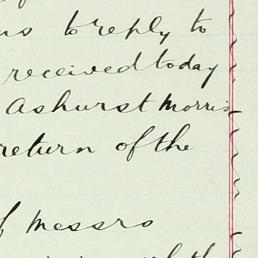 to reply to
received today
Ashurst Morris
return of the
of Messrs